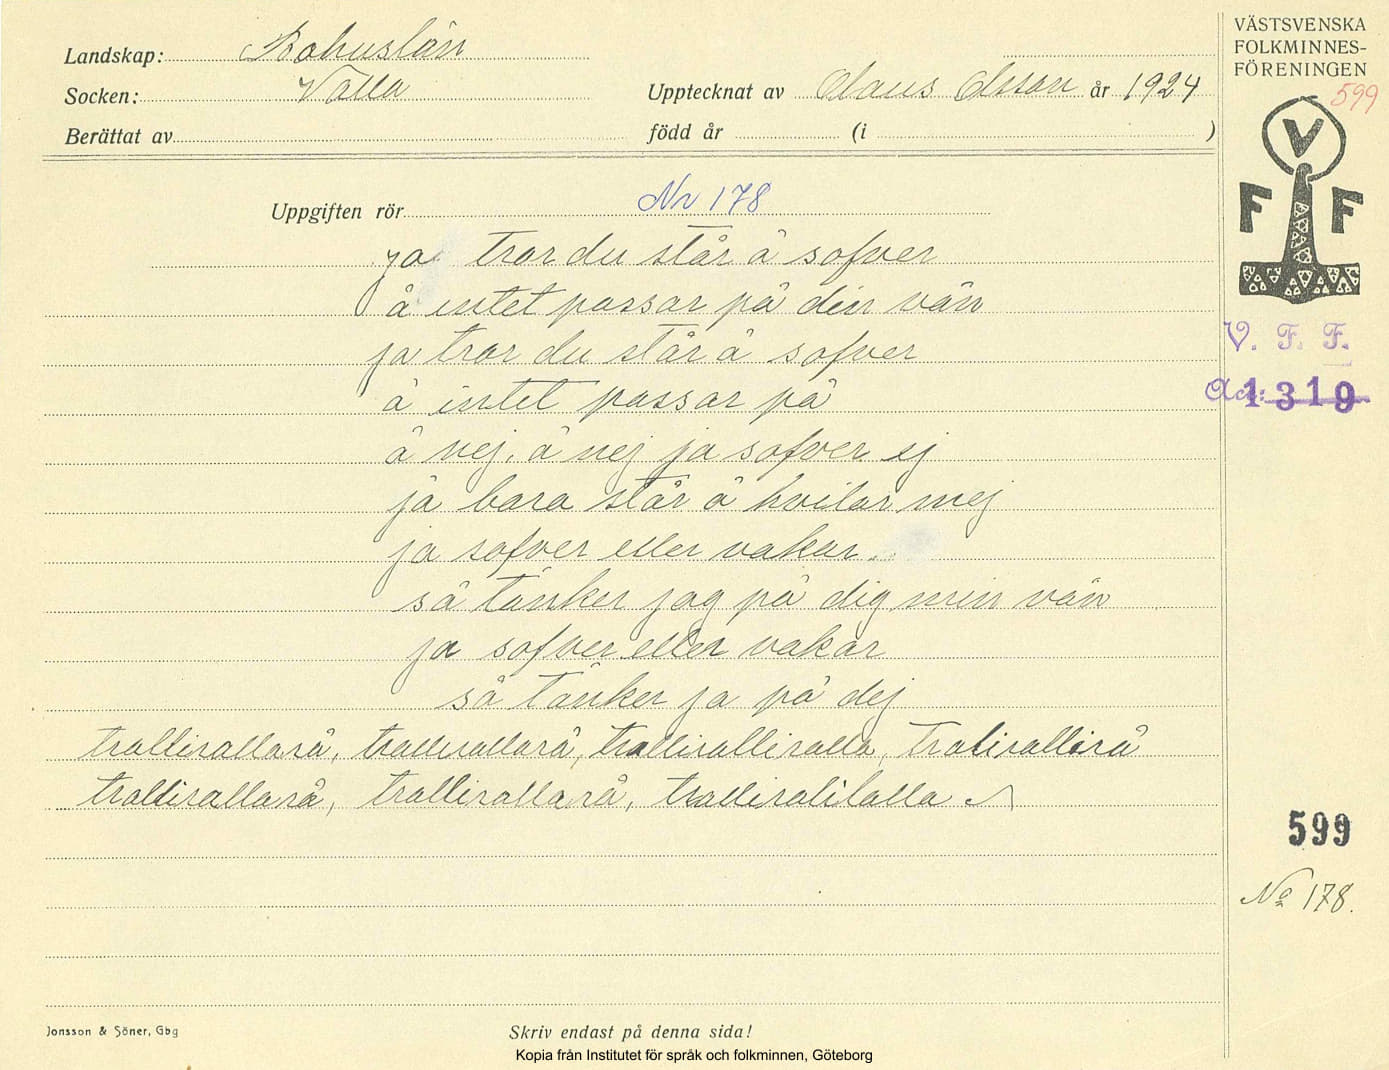 Landskap: Bohuslän
Socken: Valla
Upptecknat av Claus Olsson år 1924
Berättat av
född år
(i )
VÄSTSVENSKA
FOLKMINNES-
FÖRENINGEN
599
V
F F
V. F. F.
Acc: 1319
Uppgiften rör Nr 178
ja tror du står å sofver
å intet passar på din vän
ja tror du står å sofver
å intet passar på
å nej, å nej ja sofver ej
ja bara står å hvilar mej
ja sofver eller vakar
så tänker jag på dig min vän
ja sofver eller vakar
så tänker ja på dej
trallirallarå, trallirallarå, tralliralliralla, Tralirallirå
trallirallarå, trallirallarå, tralliralilalla
599
No 178.
Jonsson & Söner, Gbg
Skriv endast på denna sida!
Kopia från Institutet för språk och folkminnen, Göteborg